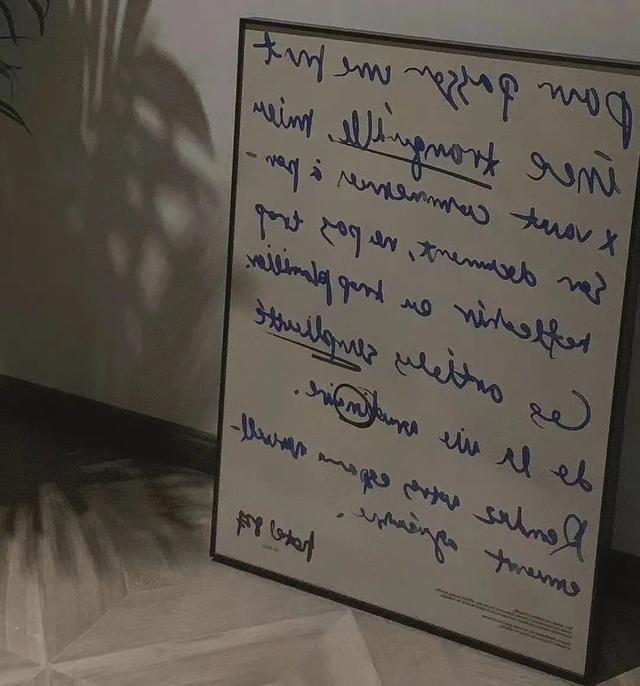 Pour passer une nuit
inée tranquille, mieu
x vaut commencer à pen-
ser doucement, ne pas trop
reflechir ou trop planifier.
Ces articles simplicité
de la vie
Rendez votres espaces nouvell-
ement agréable.
hotel